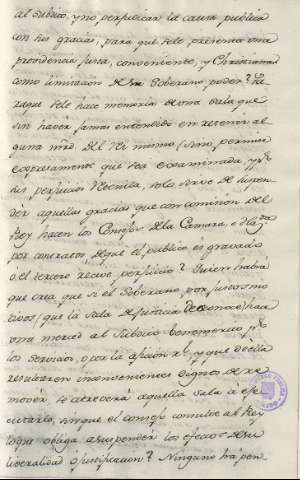 al Subdito, y no perjudicar la causa publica
con sus gracias, para que se le presenta una
providencia justa, conveniente, y Christiana
como limitacion de su Soberano poder?
raque se le hace memoria de una Sala que
sin haver jamas entendido en retener al
guna mrd. del Rey mismo (sino, permite
expresamente que sea examinada, y
sus perjuicios Reconciba, solo sirve de suspen
der aquellas gracias que con comision del
Rey hacen los Consejos de la Camara, o
por contratos de que el publico es gravado
ó el tercero recive perjuicio? Quien habrá
que crea que si el Soberano por justos mo
tivos (que la Sala de Justicia desconoce) hace
una merced al Subdito benemerito
los Servicios, o por la aficion rl. y que de ella
resultaren inconvenientes dignos de re
mover, se atreverá aquella Sala á eje
cutarlo, sin que el consejo consulte al Rey
lo que obliga a suspender los efectos de su
liberalidad ó justificacion? Ninguno há pen